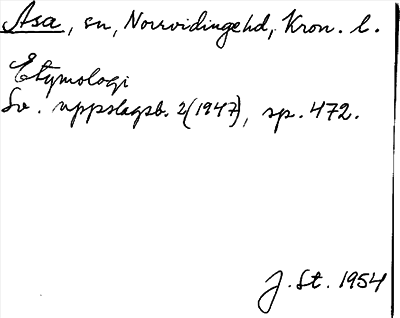 Asa, sn, Norrvidinge hd, Kron. l.
Etymologi
Sv. uppslagsb. 2(1947), sp. 472.
J. St. 1954